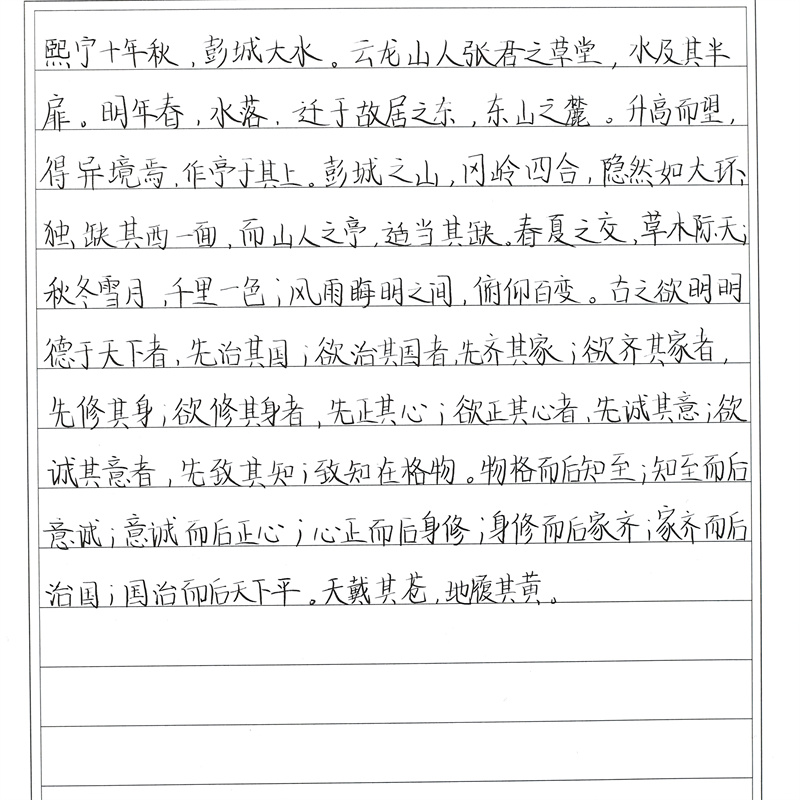 熙宁十年秋，彭城大水。云龙山人张君之草堂，水及其半
扉。明年春，水落，迁于故居之东，东山之麓。升高而望，
得异境焉，作亭于其上。彭城之山，冈岭四合，隐然如大环；
独缺其西一面，而山人之亭，适当其缺。春夏之交，草木际天；
秋冬雪月，千里一色；风雨晦明之间，俯仰百变。古之欲明明
德于天下者，先治其国；欲治其国者，先齐其家；欲齐其家者，
先修其身；欲修其身者，先正其心；欲正其心者，先诚其意；欲
诚其意者，先致其知；致知在格物。物格而后知至；知至而后
意诚；意诚而后正心；心正而后身修；身修而后家齐；家齐而后
治国；国治而后天下平。天戴其苍，地履其黄。